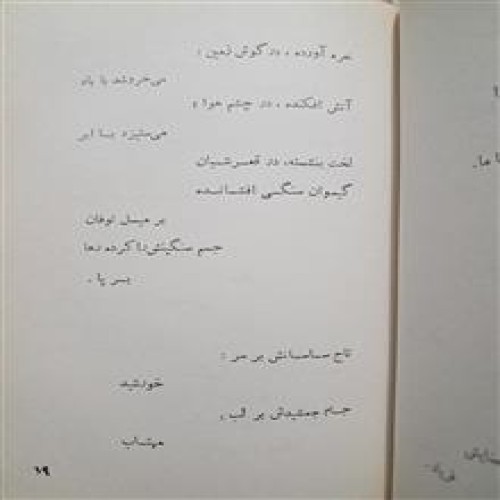 نعره آورده ، در گوش زمین ؛
می‌خروشد با باد
آتش افکنده ، در چشم هوا ؛
می‌ستیزد بـا ابر
لخت بنشسته، در قعـر شبـان
گیسوان سنگـی افشـانـده
بر میـل توفان
جسم سنگینش را کرده رها
بـر پـا .
تاج سـاسـانش بر سر :
خورشید
جـام جمشیدش بر لب ،
مهتـاب
۱۹
ا ها .